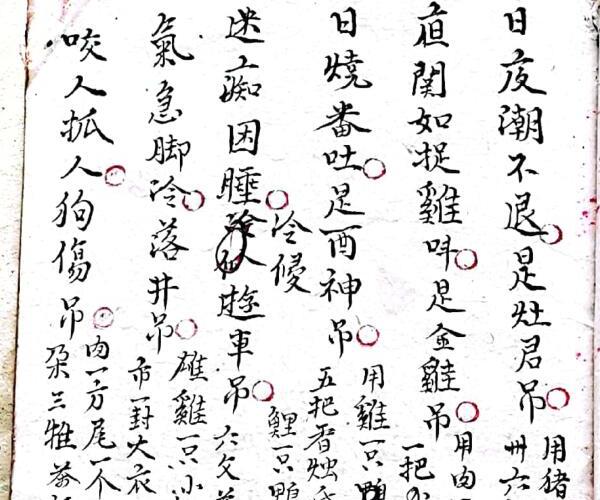 日夜潮不退是灶君吊
用猪
卅六
疽関如捉雞呌是金雞吊
用肉
一把
日燒番吐是酉神吊
用雞一只鴨
五把香烛
迷痴困腄冷傻遊車吊
鯉一只鴨
六文
氣急脚冷落井吊
雄雞一只小
市一封大衣
咬人抓人狗傷吊
肉一方尾一个
朶三牲茶